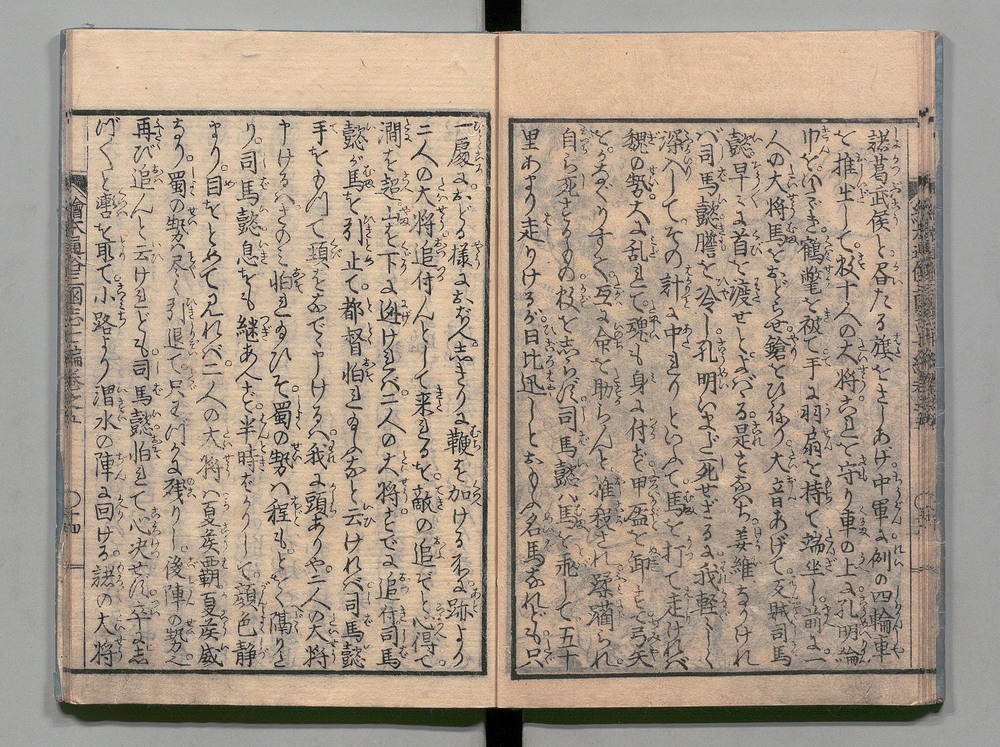 諸葛武侯と眉たる旗をさしあげ中軍に例の四輪車
を推出して數十人の大将これを守り車の上に孔明綸
巾をいたゞき鶴氅を被て手に羽扇を持て端坐し前に一
人の大将馬をおどらせ鎗をひねり大音あげて反賊司馬
懿早々に首を渡せとよばゝる是すなはち姜維なりけれ
バ司馬懿膽を冷し孔明いまだ死せざるに我軽々しく
深入してその計に中れりといふて馬を打て走けれバ
魏の勢大に乱れて魂も身に付ず甲盔を卸すて弓矢
をなぐりすて互に命を助らんと推殺され蹂躪られ
自ら死するもの数を志らず司馬懿ハ馬を乘して五十
里あまり走りけるが日比迅しとおもふ名馬なれども只
一處におどる様におぼえ志きりに鞭を加ける所に跡より
二人の大将追付んとして来れるを敵の追ぞと心得て
澗を超山を下に迯けれバ二人の大将すでに追付司馬
懿が馬を引止て都督怕れ玉ふなと云けれバ司馬懿
手をもつて頭をなでて申けるハ我に頭ありや二人の大将
申けるハさのミ怕れ玉ひそ蜀の勢ハ程もとをく隔りた
り司馬懿息をも継あへず半時ばかりして顔色静
まり目をとめて見れバ二人の大将ハ夏侯覇夏侯威
なり蜀の勢ハ尽く引退て只すこしバかり残りし後陣の勢を
再び追んと云けれども司馬懿怕れて心决せず卒に志
バらく轡を取て小路より渭水の陣に回ける諸の大将
繪本通俗三國志七編巻之五
十四